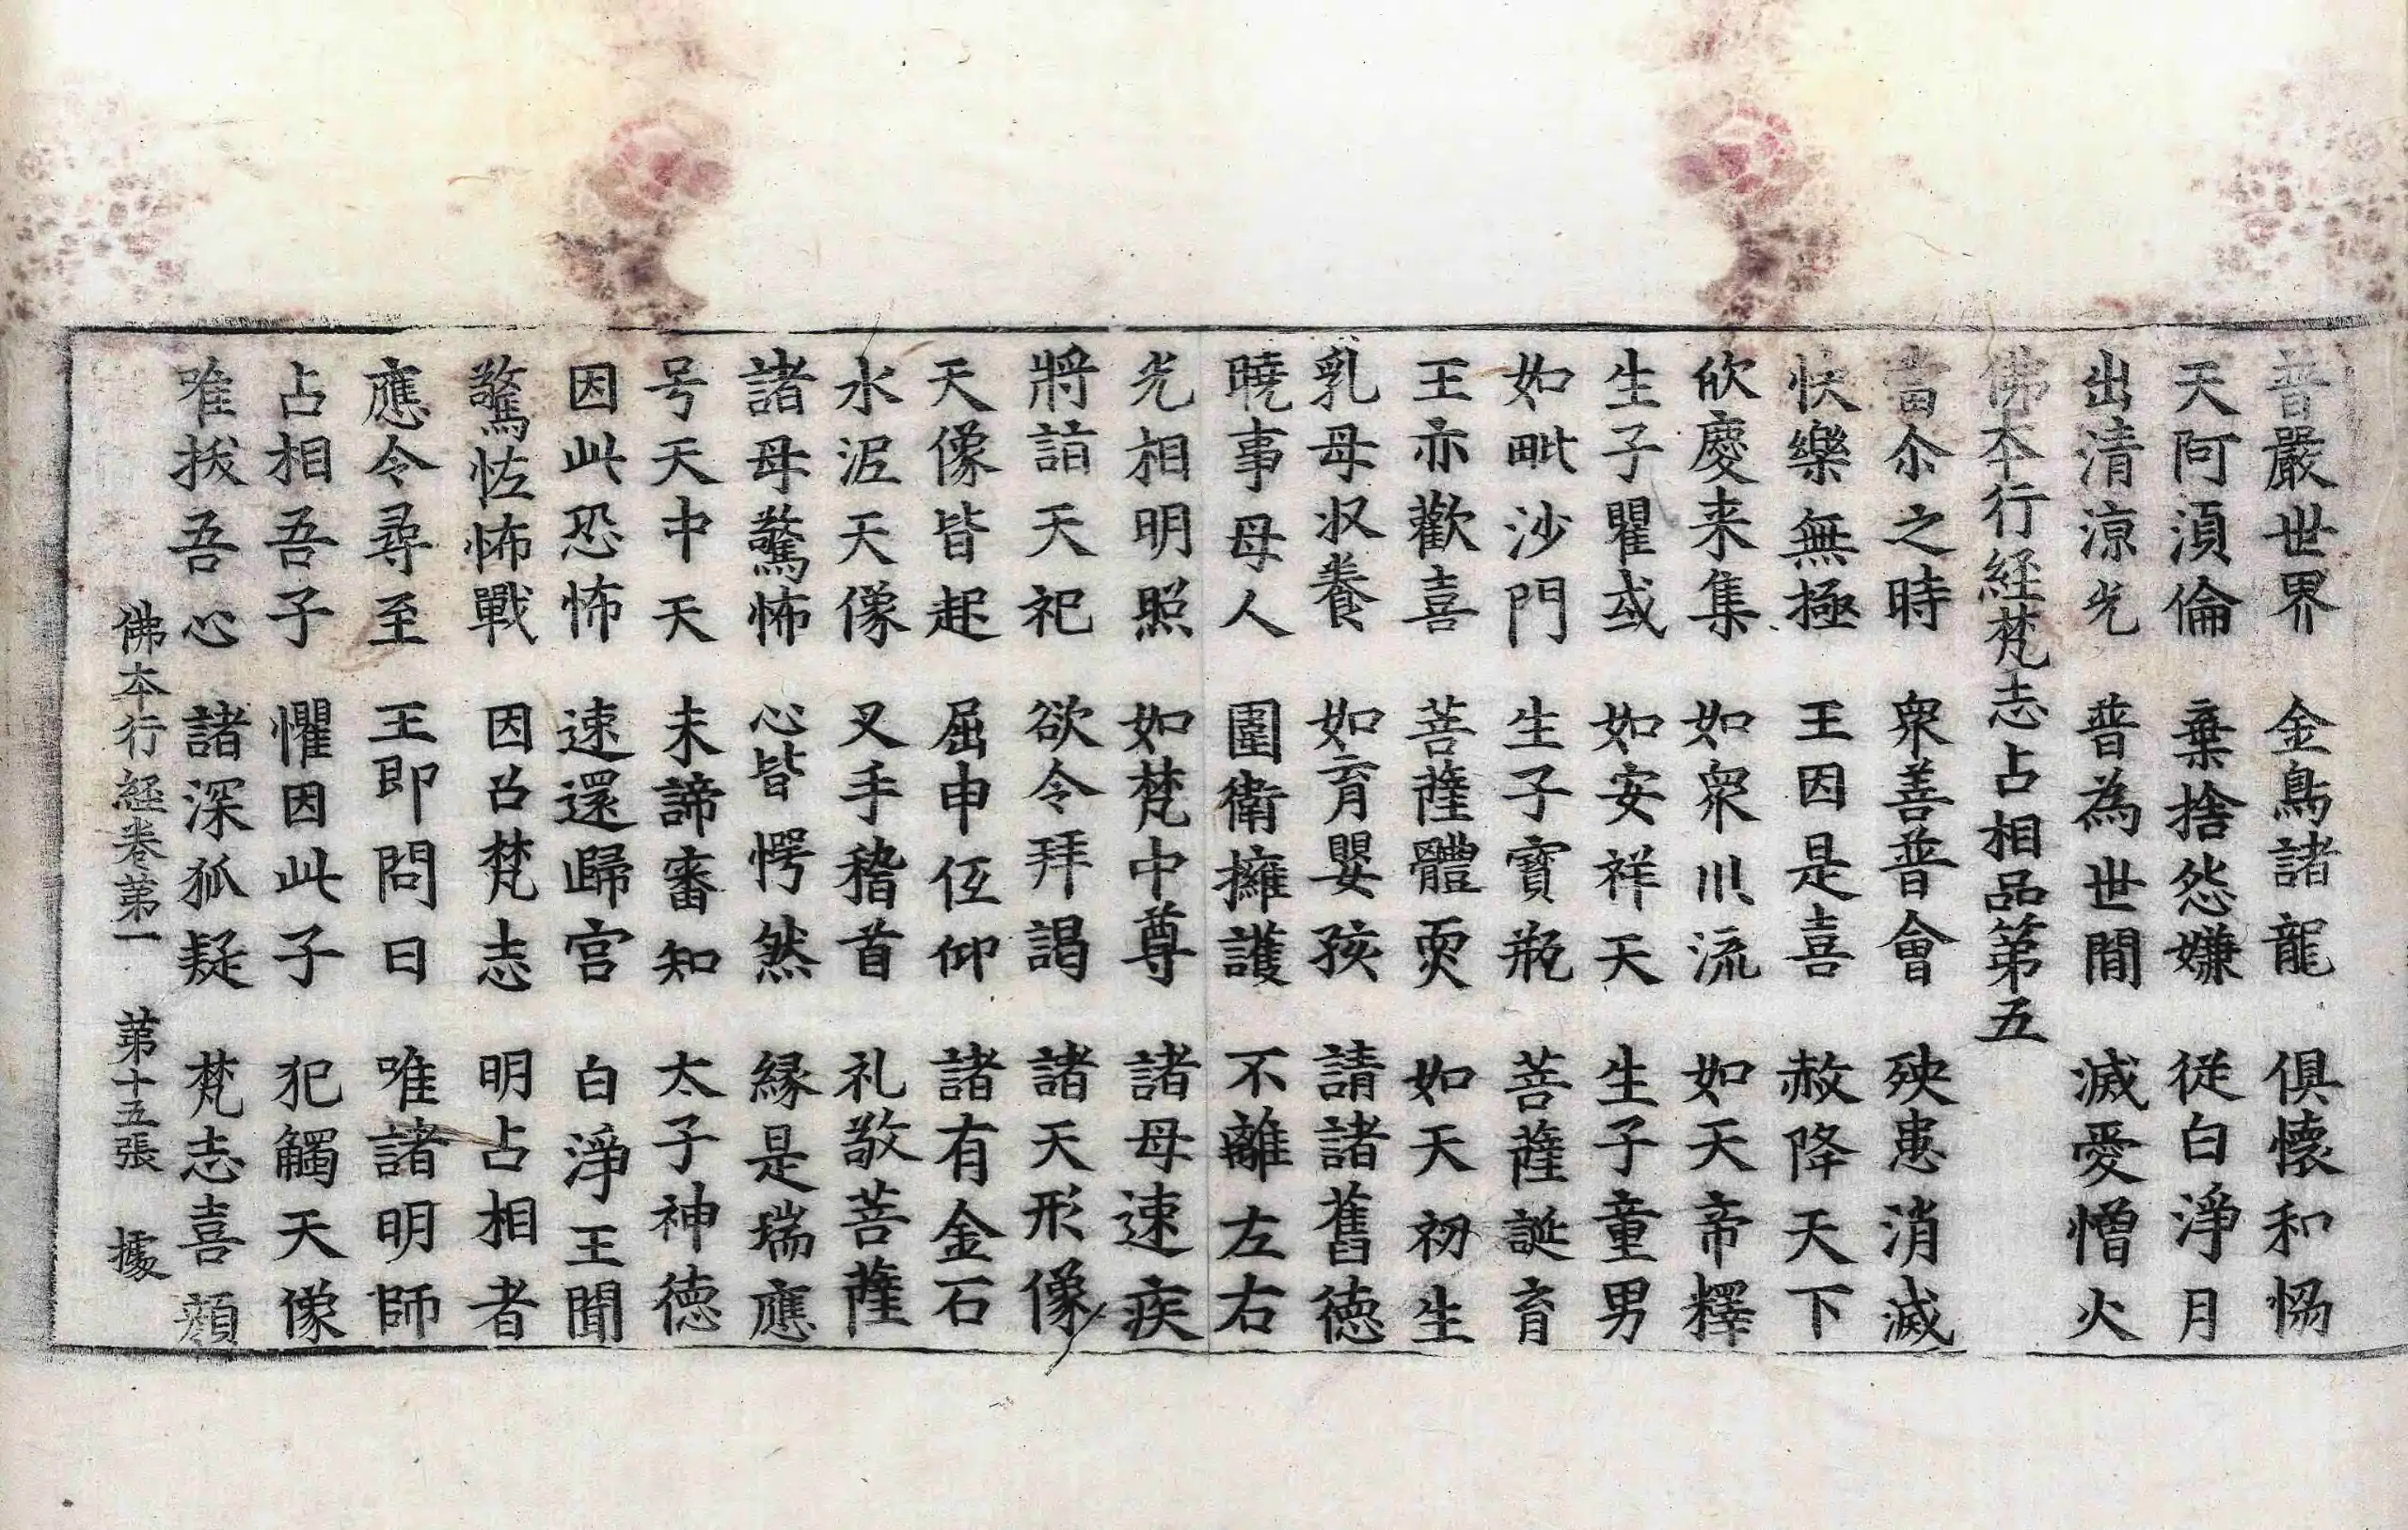 普嚴世界 金鳥諸龍 俱懷和愓
天阿湏倫 棄捨怨嫌 從白淨月
出清涼光 普為世間 滅愛憎火
佛本行経梵志占相品第五
當尒之時 衆善普會 殃患消滅
快樂無極 王因是喜 赦降天下
欣慶来集 如衆川流 如天帝釋
生子瞿或 如安祥天 生子童男
如毗沙門 生子寶瓶 菩薩誕育
王亦歡喜 菩薩體耎 如天初生
乳母収養 如育嬰孩 請諸舊徳
曉事母人 圍衛擁護 不離左右
光相明照 如梵中尊 諸母速疾
將詣天祀 欲令拜謁 諸天形像
天像皆起 屈申低仰 諸有金石
水泥天像 叉手稽首 礼敬菩薩
諸母驚怖 心皆愕然 緣是瑞應
号天中天 未諦審知 太子神徳
因此恐怖 速還歸宮 白淨王聞
驚恠怖戰 因召梵志 明占相者
應令尋至 王即問曰 唯諸明師
占相吾子 懼因此子 犯觸天像
唯拔吾心 諸深狐疑 梵志喜顏
佛本行経卷第一 第十五張 據